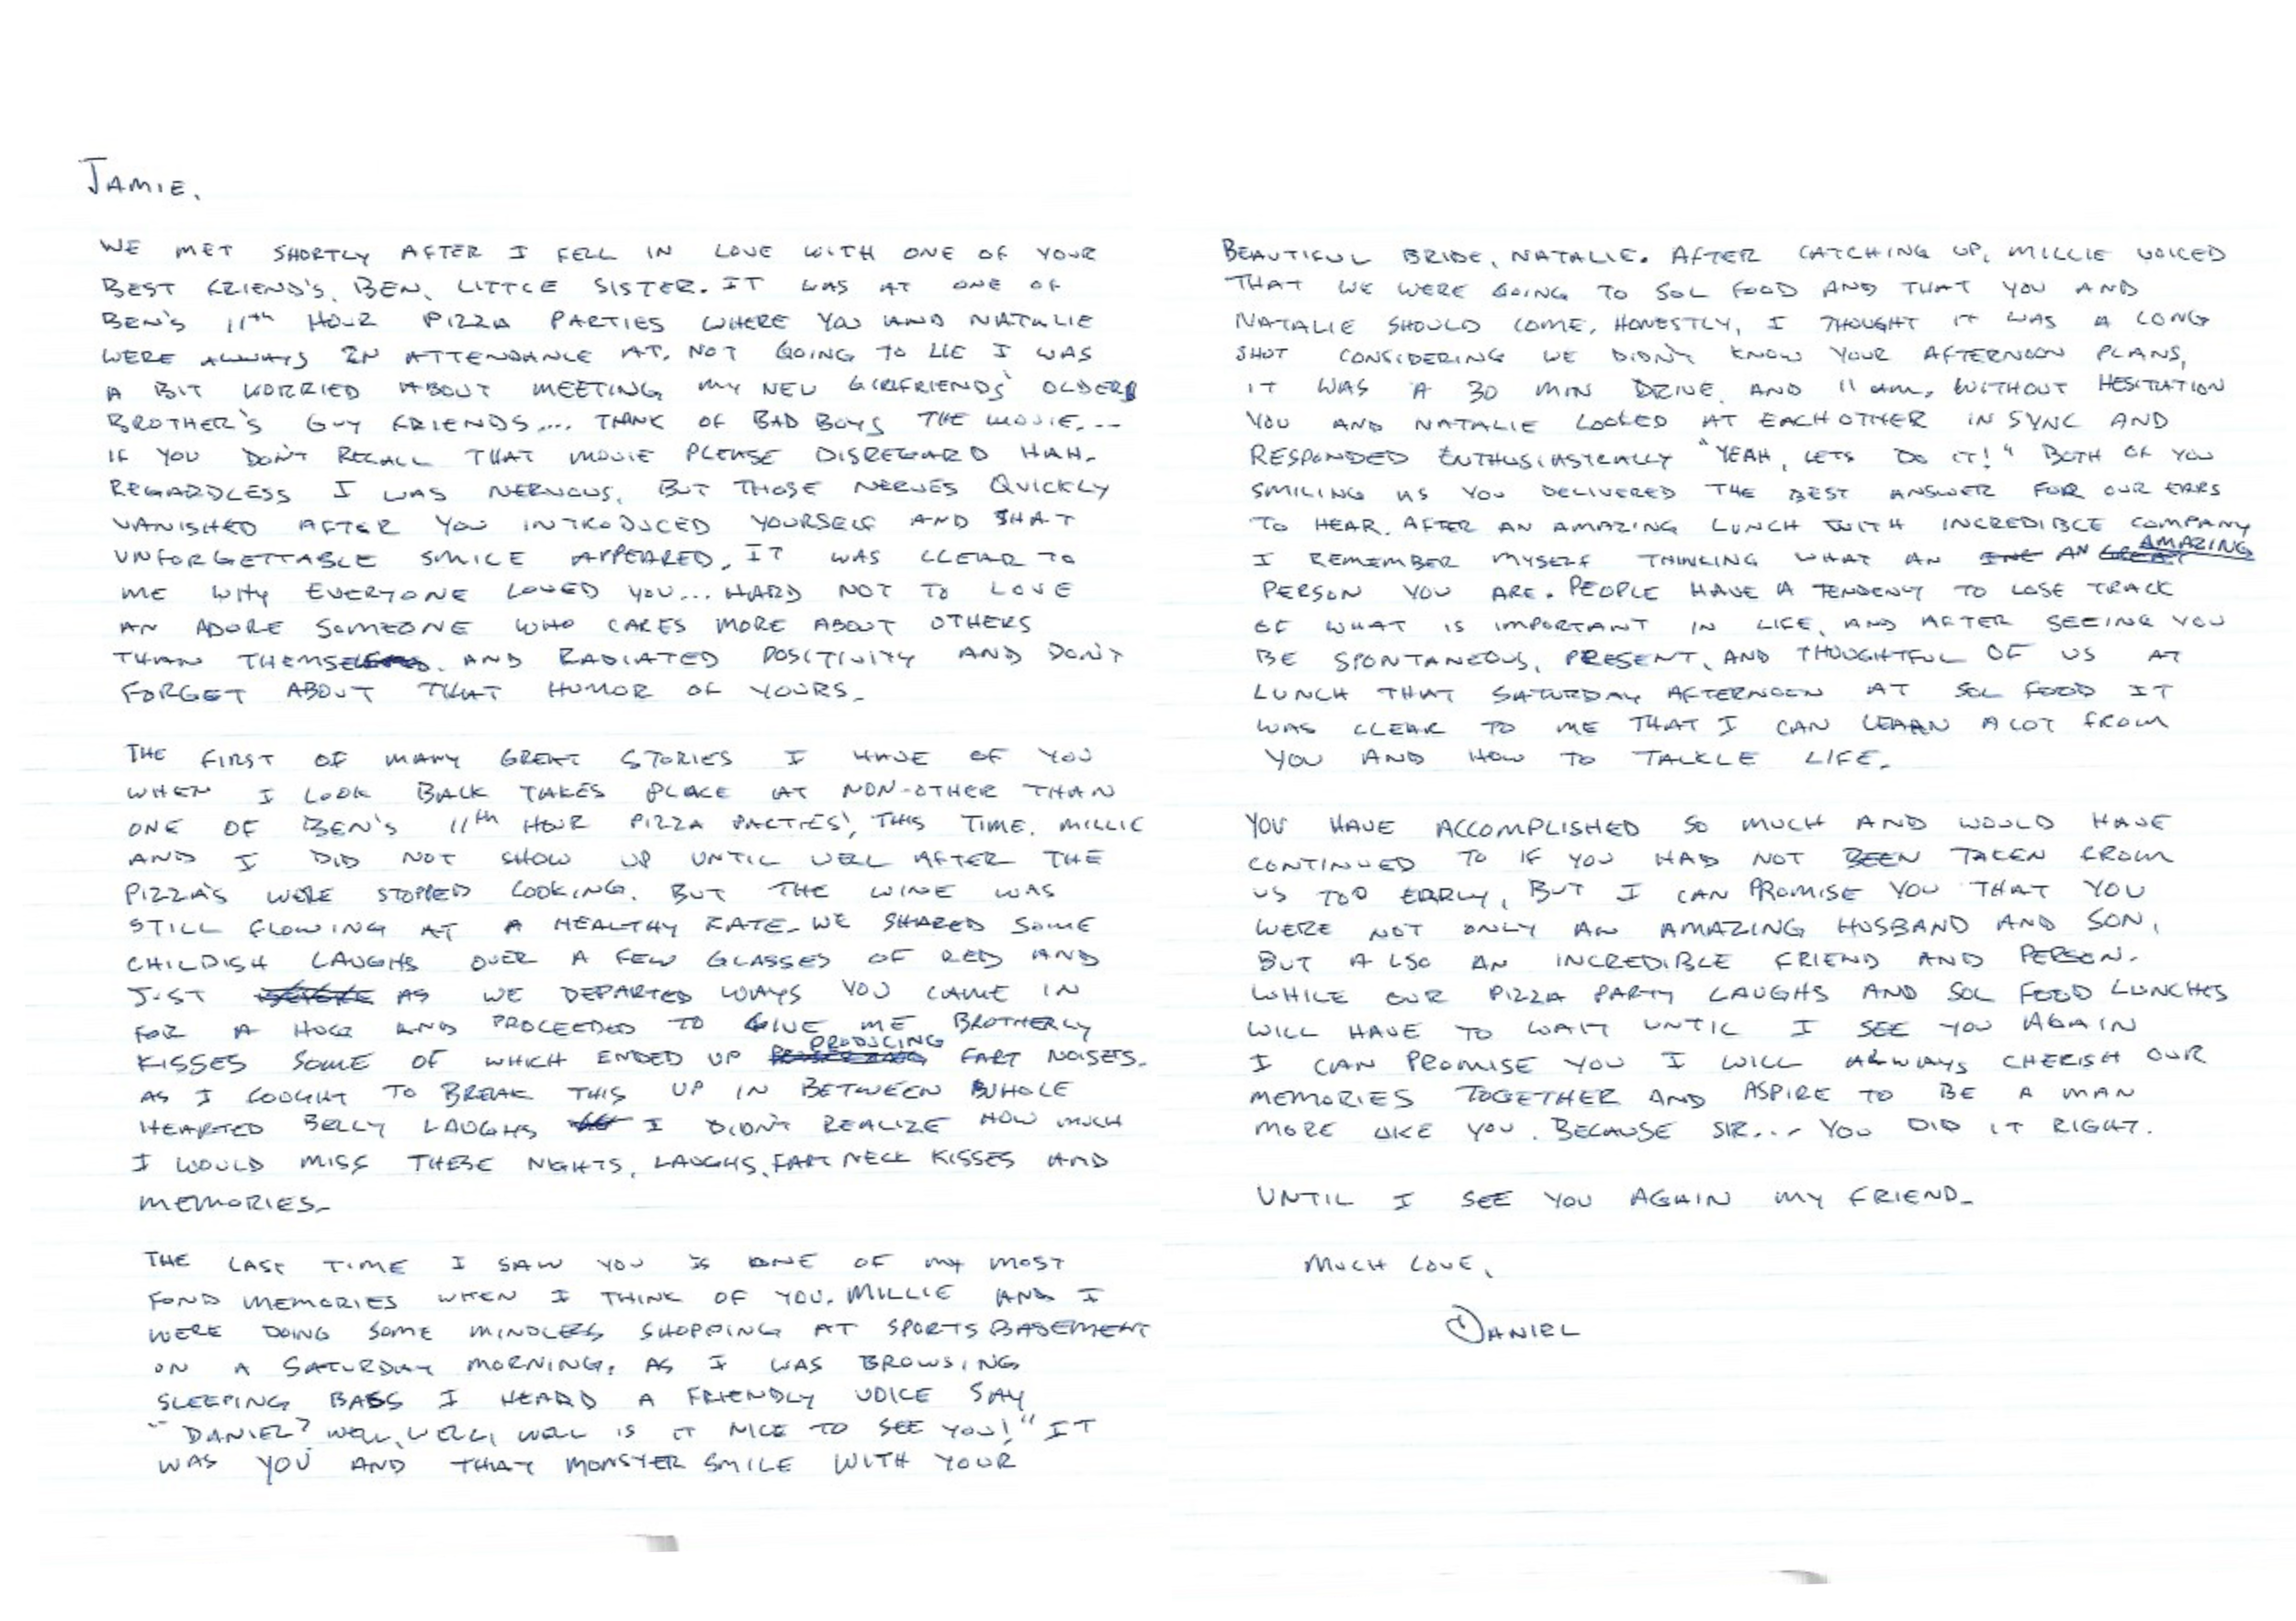 JAMIE,
WE MET SHORTLY AFTER I FELL IN LOVE WITH ONE OF YOUR
BEST FRIEND'S, BEN, LITTLE SISTER. IT WAS AT ONE OF
BEN'S 11th HOUR PIZZA PARTIES WHERE YOU AND NATALIE
WERE ALWAYS IN ATTENDANCE AT. NOT GOING TO LIE I WAS
A BIT WORRIED ABOUT MEETING MY NEW GIRLFRIENDS' OLDER
BROTHER'S GUY FRIENDS.... THINK OF BAD BOYS THE MOVIE....
IF YOU DON'T RECALL THAT MOVIE PLEASE DISREGARD HAH.
REGARDLESS I WAS NERVOUS, BUT THOSE NERVES QUICKLY
VANISHED AFTER YOU INTRODUCED YOURSELF AND THAT
UNFORGETTABLE SMILE APPEARED. IT WAS CLEAR TO
ME WHY EVERYONE LOVED YOU... HARD NOT TO LOVE
AN ADORE SOMEONE WHO CARES MORE ABOUT OTHERS
THAN THEMSELVES, AND RADIATED POSITIVITY AND DON'T
FORGET ABOUT THAT HUMOR OF YOURS.
THE FIRST OF MANY GREAT STORIES I HAVE OF YOU
WHEN I LOOK BACK TAKES PLACE AT NON-OTHER THAN
ONE OF BEN'S 11th HOUR PIZZA PARTIES', THIS TIME, MILLIE
AND I DID NOT SHOW UP UNTIL WELL AFTER THE
PIZZA'S WERE STOPPED COOKING. BUT THE WINE WAS
STILL FLOWING AT A HEALTHY RATE. WE SHARED SOME
CHILDISH LAUGHS OVER A FEW GLASSES OF RED AND
JUST AS WE DEPARTED WAYS YOU CAME IN
FOR A HUGE AND PROCEEDED TO GIVE ME BROTHERLY
KISSES SOME OF WHICH ENDED UP PRODUCING FART NOISES.
AS I FOUGHT TO BREAK THIS UP IN BETWEEN WHOLE
HEARTED BELLY LAUGHS I DIDN'T REALIZE HOW MUCH
I WOULD MISS THESE NIGHTS, LAUGHS, FART NECK KISSES AND
MEMORIES.
THE LAST TIME I SAW YOU IS ONE OF MY MOST
FOND MEMORIES WHEN I THINK OF YOU. MILLIE AND I
WERE DOING SOME MINDLESS SHOPPING AT SPORTS BASEMENT
ON A SATURDAY MORNING. AS I WAS BROWSING
SLEEPING BAGS I HEARD A FRIENDLY VOICE SAY
"DANIEL? WELL, WELL, WELL IS IT NICE TO SEE YOU!" IT
WAS YOU AND THAT MONSTER SMILE WITH YOUR
BEAUTIFUL BRIDE, NATALIE. AFTER CATCHING UP, MILLIE VOICED
THAT WE WERE GOING TO SOL FOOD AND THAT YOU AND
NATALIE SHOULD COME. HONESTLY, I THOUGHT IT WAS A LONG
SHOT CONSIDERING WE DIDN'T KNOW YOUR AFTERNOON PLANS,
IT WAS A 30 MIN DRIVE, AND 11 AM. WITHOUT HESITATION
YOU AND NATALIE LOOKED AT EACHOTHER IN SYNC AND
RESPONDED ENTHUSIASTICALLY "YEAH, LETS DO IT!" BOTH OF YOU
SMILING AS YOU DELIVERED THE BEST ANSWER FOR OUR EARS
TO HEAR. AFTER AN AMAZING LUNCH WITH INCREDIBLE COMPANY
I REMEMBER MYSELF THINKING WHAT AN AN AMAZING
PERSON YOU ARE. PEOPLE HAVE A TENDENCY TO LOSE TRACK
OF WHAT IS IMPORTANT IN LIFE, AND AFTER SEEING YOU
BE SPONTANEOUS, PRESENT, AND THOUGHTFUL OF US AT
LUNCH THAT SATURDAY AFTERNOON AT SOL FOOD IT
WAS CLEAR TO ME THAT I CAN LEARN ALOT FROM
YOU AND HOW TO TACKLE LIFE.
YOU HAVE ACCOMPLISHED SO MUCH AND WOULD HAVE
CONTINUED TO IF YOU HAD NOT BEEN TAKEN FROM
US TOO EARLY, BUT I CAN PROMISE YOU THAT YOU
WERE NOT ONLY AN AMAZING HUSBAND AND SON,
BUT ALSO AN INCREDIBLE FRIEND AND PERSON.
WHILE OUR PIZZA PARTY LAUGHS AND SOL FOOD LUNCHES
WILL HAVE TO WAIT UNTIL I SEE YOU AGAIN
I CAN PROMISE YOU I WILL ALWAYS CHERISH OUR
MEMORIES TOGETHER AND ASPIRE TO BE A MAN
MORE LIKE YOU. BECAUSE SIR... YOU DID IT RIGHT.
UNTIL I SEE YOU AGAIN MY FRIEND.
MUCH LOVE,
DANIEL